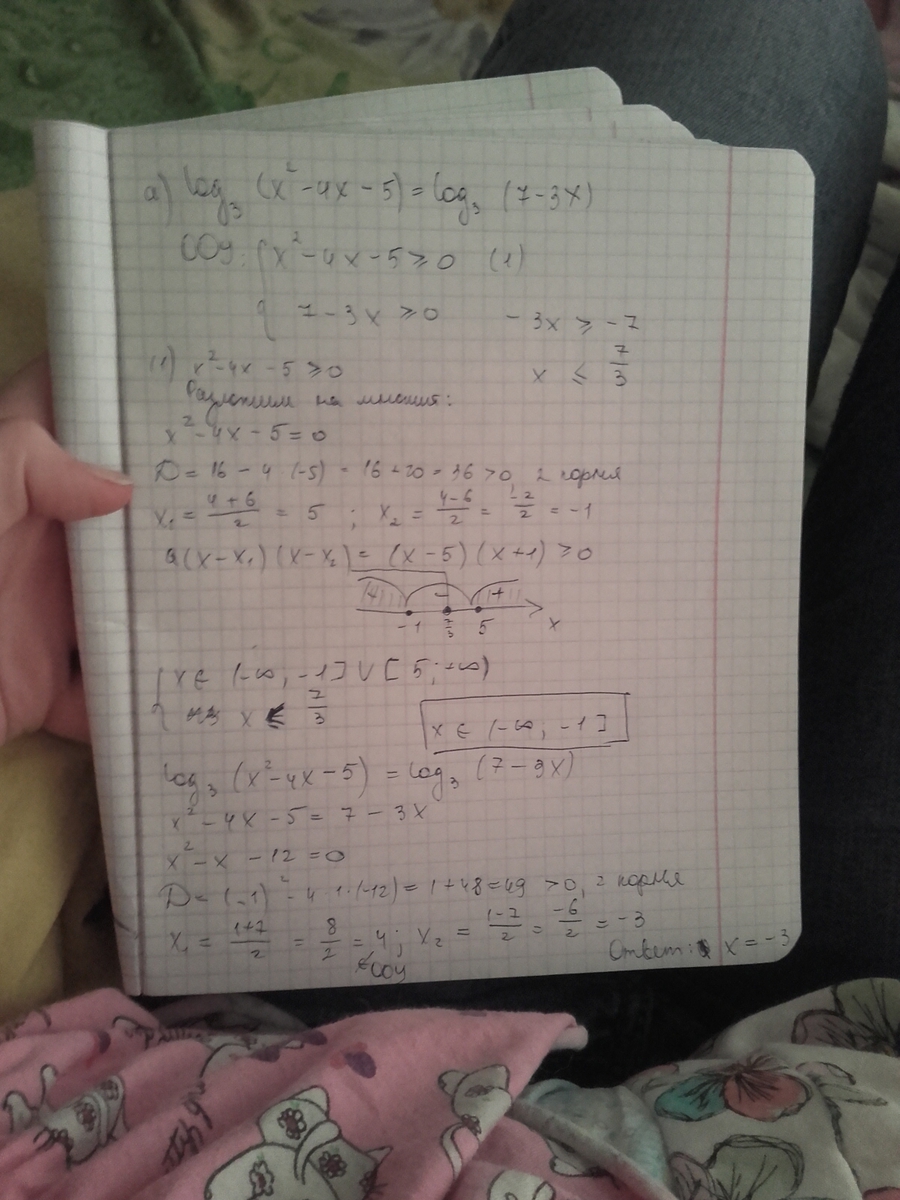 а) log₃ (x² - 4x - 5) = log₃ (7 - 3x)
ООУ: { x² - 4x - 5 ⩾ 0 (1)
7 - 3x ⩾ 0 - 3x ⩾ -7
x ⩽ 7/3
(1) x² - 4x - 5 ⩾ 0
Разложим на множит:
x² - 4x - 5 = 0
D = 16 - 4 · (-5) = 16 + 20 = 36 > 0, 2 корня
x₁ = (4 + 6)/2 = 5 ; x₂ = (4 - 6)/2 = -2/2 = -1
a (x - x₁) (x - x₂) = (x - 5) (x + 1) ⩾ 0
+ - +
-1 7/3 5 x
{ x ∈ (-∞, -1] ∪ [5; +∞)
x ⩽ 7/3
x ∈ (-∞, -1]
log₃ (x² - 4x - 5) = log₃ (7 - 3x)
x² - 4x - 5 = 7 - 3x
x² - x - 12 = 0
D = (-1)² - 4 · 1 · (-12) = 1 + 48 = 49 > 0, 2 корня
x₁ = (1 + 7)/2 = 8/2 = 4 ; x₂ = (1 - 7)/2 = -6/2 = -3
∉ ООУ
Ответ: x = -3